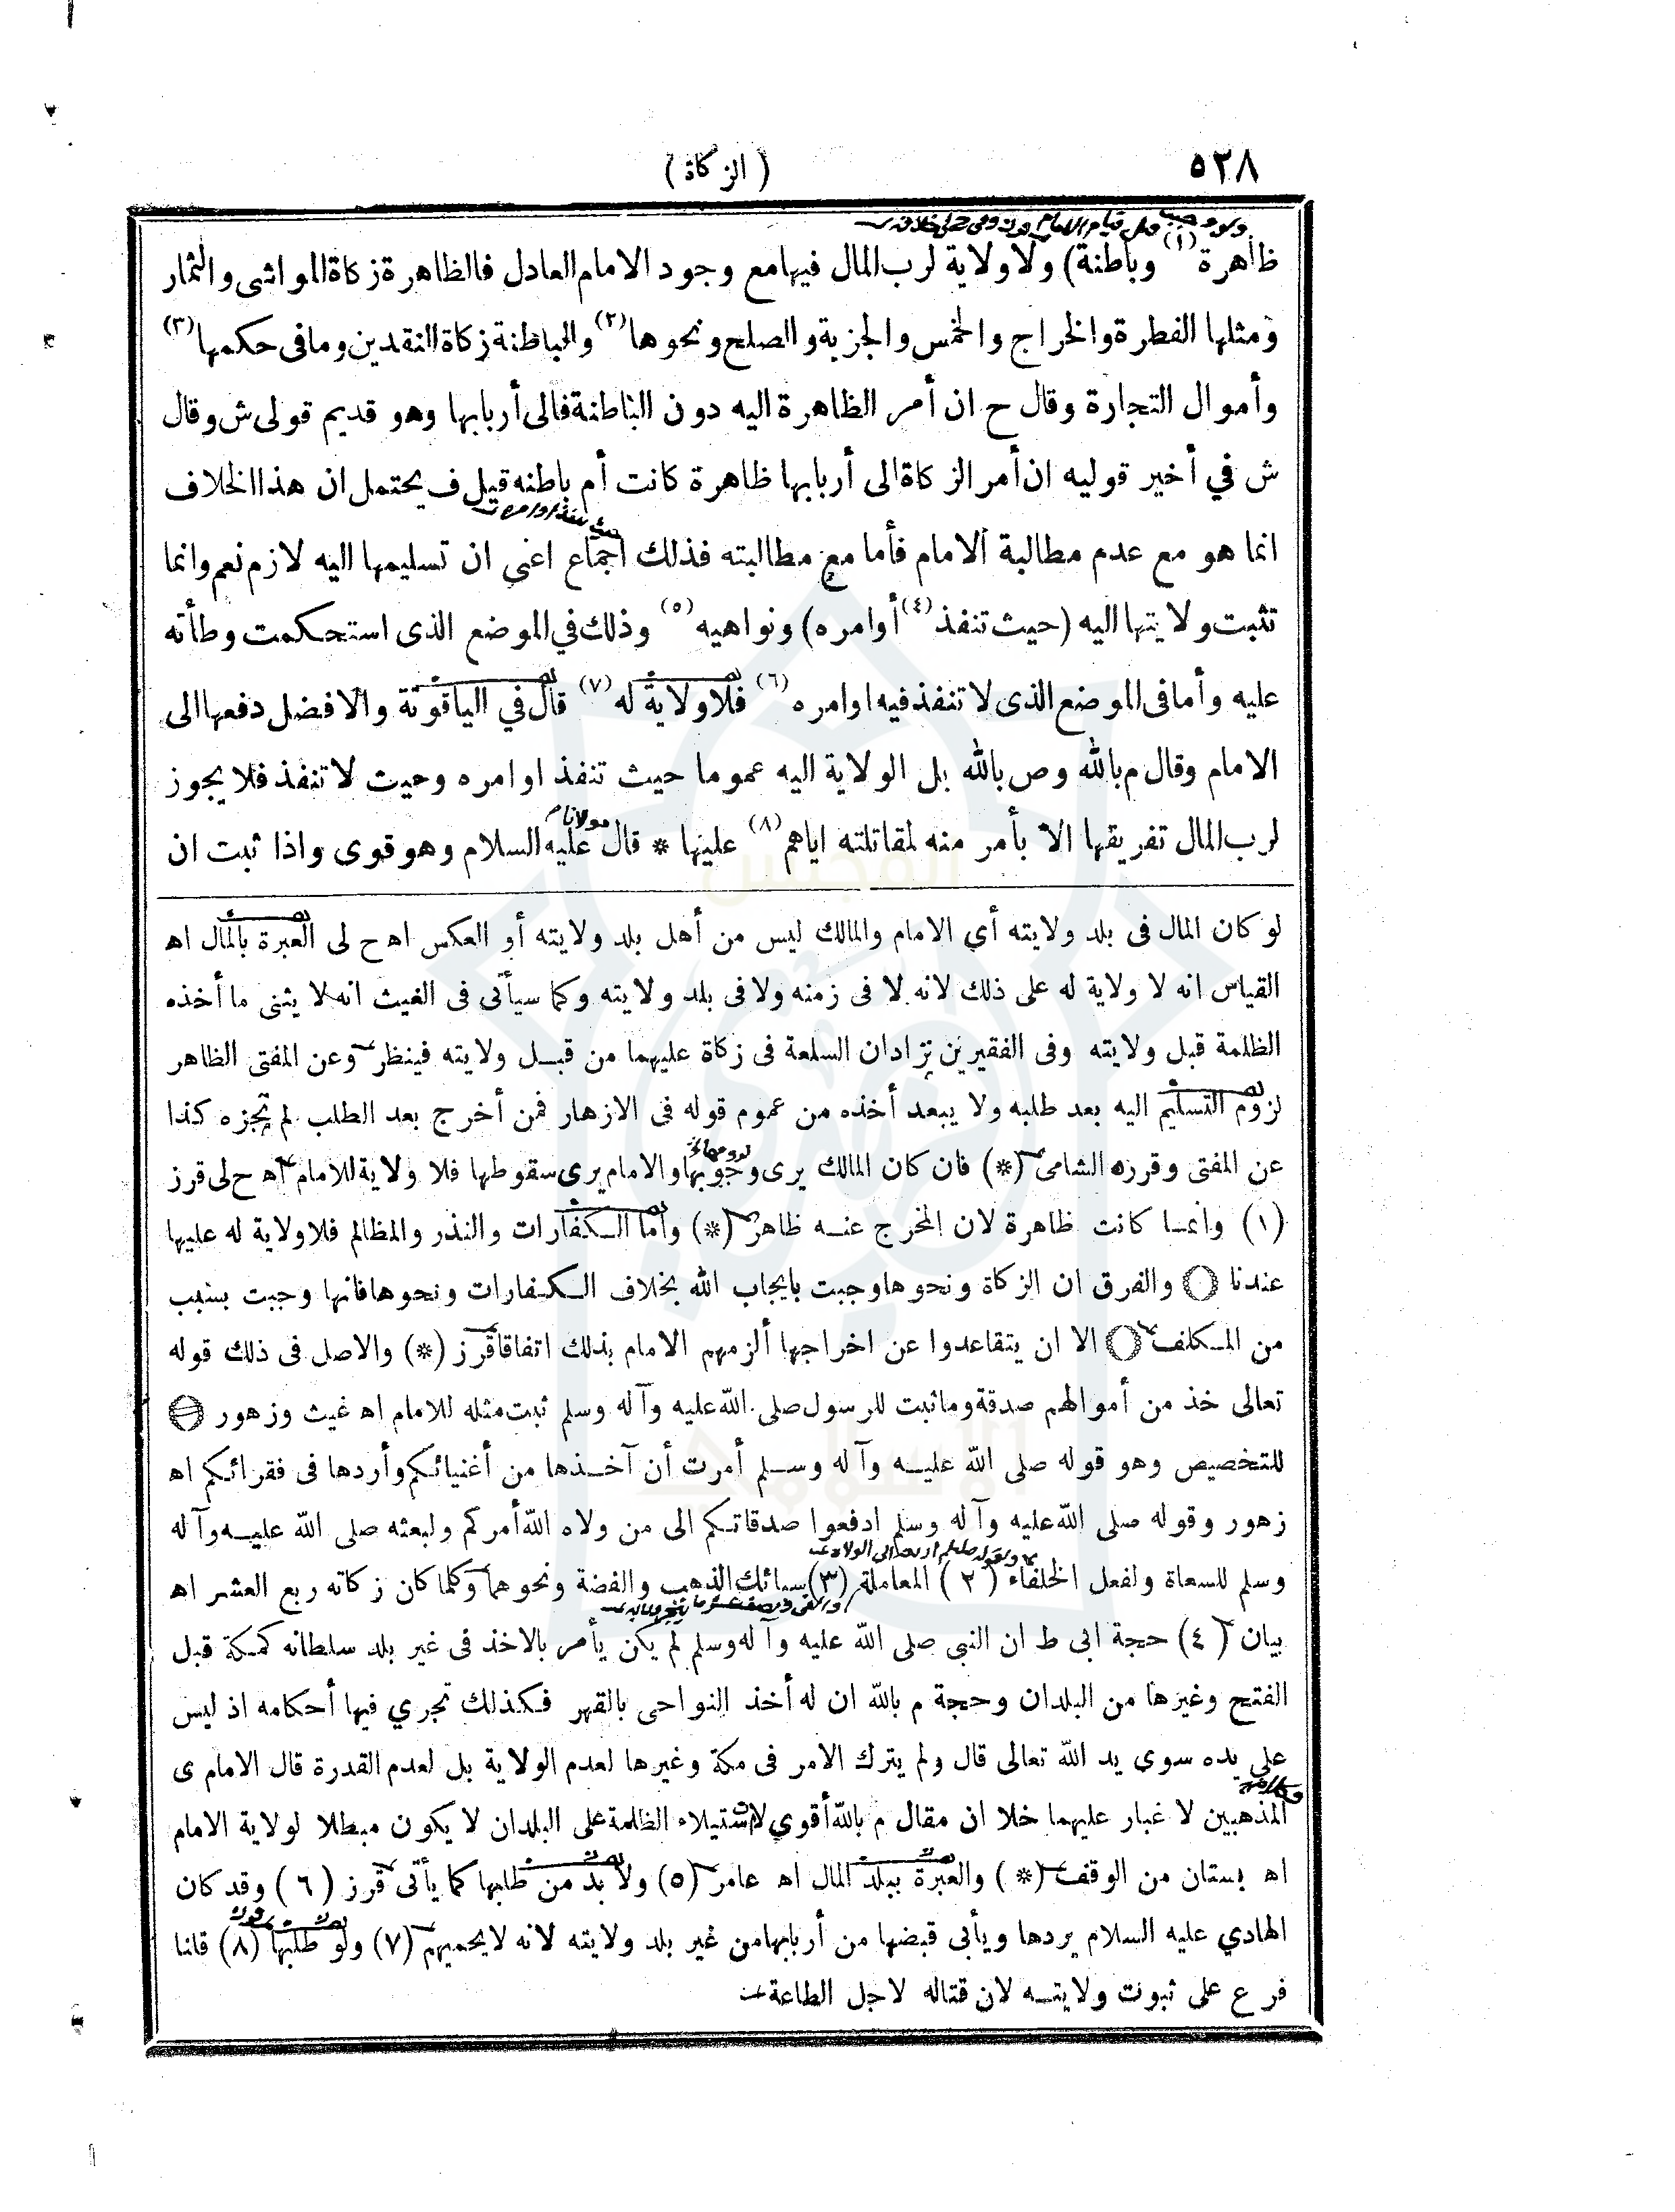 ٥٢٨
( الزكاة )
ظاهرة (١) وباطنة) ولا ولاية لرب المال فيها مع وجود الامام العادل فالظاهرة زكاة المواشى والثمار
ومثلها الفطرة والخراج والخمس والجزية والصلح ونحوها (٢) والباطنة زكاة النقدين وما فى حكمها (٣)
وأموال التجارة وقال ح ان أمر الظاهرة اليه دون الباطنة فالى أربابها وهو قديم قولى ش وقال
ش في أخير قوليه ان أمر الزكاة الى أربابها ظاهرة كانت أم باطنه قيل ف يحتمل ان هذا الخلاف
انما هو مع عدم مطالبة الامام فأما مع مطالبته فذلك اجماع اعنى ان تسليمها اليه لازم نعم وانما
تثبت ولايتها اليه (حيث تنفذ (٤) أوامره) ونواهيه (٥) وذلك في الموضع الذى استحكمت وطأته
عليه وأما فى الموضع الذى لا تنفذ فيه اوامره (٦) فلا ولاية له (٧) قال في الياقوتة والافضل دفعها الى
الامام وقال م بالله وص بالله بل الولاية اليه عموما حيث تنفذ اوامره وحيت لا تنفذ فلا يجوز
لرب المال تفريقها الا بأمر منه لمقاتلته اياهم (٨) عليها * قال مولانا عليه السلام وهو قوى واذا ثبت ان
لو كان المال فى بلد ولايته أي الامام والمالك ليس من أهل بلد ولايته أو العكس اه ح لى العبرة بالمال اه
القياس انه لا ولاية له على ذلك لانه لا فى زمنه ولا فى بلد ولايته وكما سيأتى فى الغيث انه لا يثنى ما أخذه
الظلمة قبل ولايته وفى الفقيرين يزادان السلعة فى زكاة عليهما من قبل ولايته فينظر وعن المفتى الظاهر
لزوم التسليم اليه بعد طلبه ولا يبعد أخذه من عموم قوله فى الازهار فمن أخرج بعد الطلب لم تجزه كذا
عن المفتى وقرزه الشامى (*) فان كان المالك يرى وجوبها والامام يرى سقوطها فلا ولاية للامام اه ح لى قرز
(١) وانما كانت ظاهرة لان المخرج عنه ظاهر (*) وأما الكفارات والنذر والمظالم فلا ولاية له عليها
عندنا والفرق ان الزكاة ونحوها وجبت بايجاب الله بخلاف الكفارات ونحوها فانها وجبت بسبب
من المكلف الا ان يتقاعدوا عن اخراجها ألزمهم الامام بذلك اتفاقا قرز (*) والاصل فى ذلك قوله
تعالى خذ من أموالهم صدقة وما ثبت للرسول صلى الله عليه وآله وسلم ثبت مثله للامام اه غيث وزهور
للتخصيص وهو قوله صلى الله عليه وآله وسلم أمرت أن آخذها من أغنيائكم وأردها فى فقرائكم اه
زهور وقوله صلى الله عليه وآله وسلم ادفعوا صدقاتكم الى من ولاه الله أمركم ولبعثه صلى الله عليه وآله
وسلم للسعاة ولفعل الخلفاء (٢) المعاملة (٣) سبائك الذهب والفضة ونحوهما وكلما كان زكاته ربع العشر اه
بيان (٤) حجة ابى ط ان النبى صلى الله عليه وآله وسلم لم يكن يأمر بالاخذ فى غير بلد سلطانه كمكة قبل
الفتح وغيرها من البلدان وحجة م بالله ان له أخذ النواحى بالقهر فكذلك تجري فيها أحكامه اذ ليس
على يده سوى يد الله تعالى قال ولم يترك الامر فى مكة وغيرها لعدم الولاية بل لعدم القدرة قال الامام ى
المذهبين لا غبار عليهما خلا ان مقال م بالله أقوي لاستيلاء الظلمة على البلدان لا يكون مبطلا لولاية الامام
اه بستان من الوقف (*) والعبرة ببلد المال اه عامر (٥) ولا بد من طلبها كما يأتى قرز (٦) وقد كان
الهادي عليه السلام يردها ويأبى قبضها من أربابها من غير بلد ولايته لانه لا يحميهم (٧) ولو طلبها (٨) قلنا
فرع على ثبوت ولايته لان قتاله لاجل الطاعة